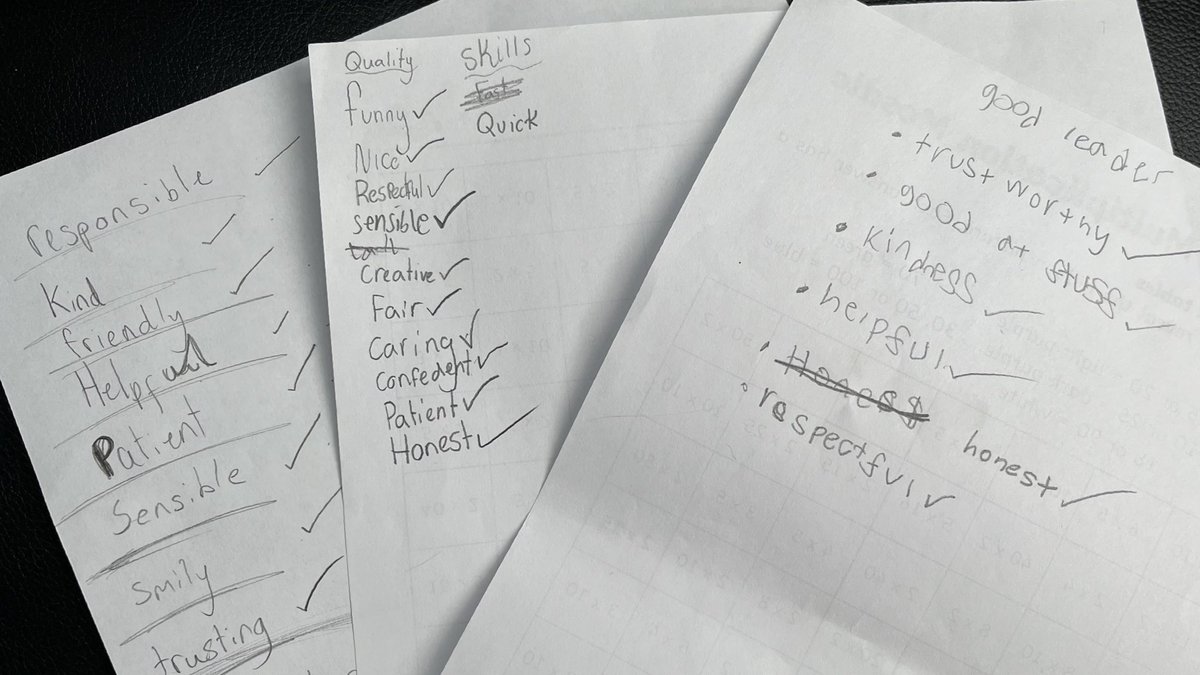 responsible
Kind
friendly
Helpful
Patient
Sensible
Smily
trusting
Quality
funny
Nice
Respectful
sensible
Creative
Fair
Caring
Confedent
Patient
Honest
Skills
Fast
Quick
good leader
• trust worthy
• good at stuff
• Kindness
• helpful
• Honess honest
• respectful